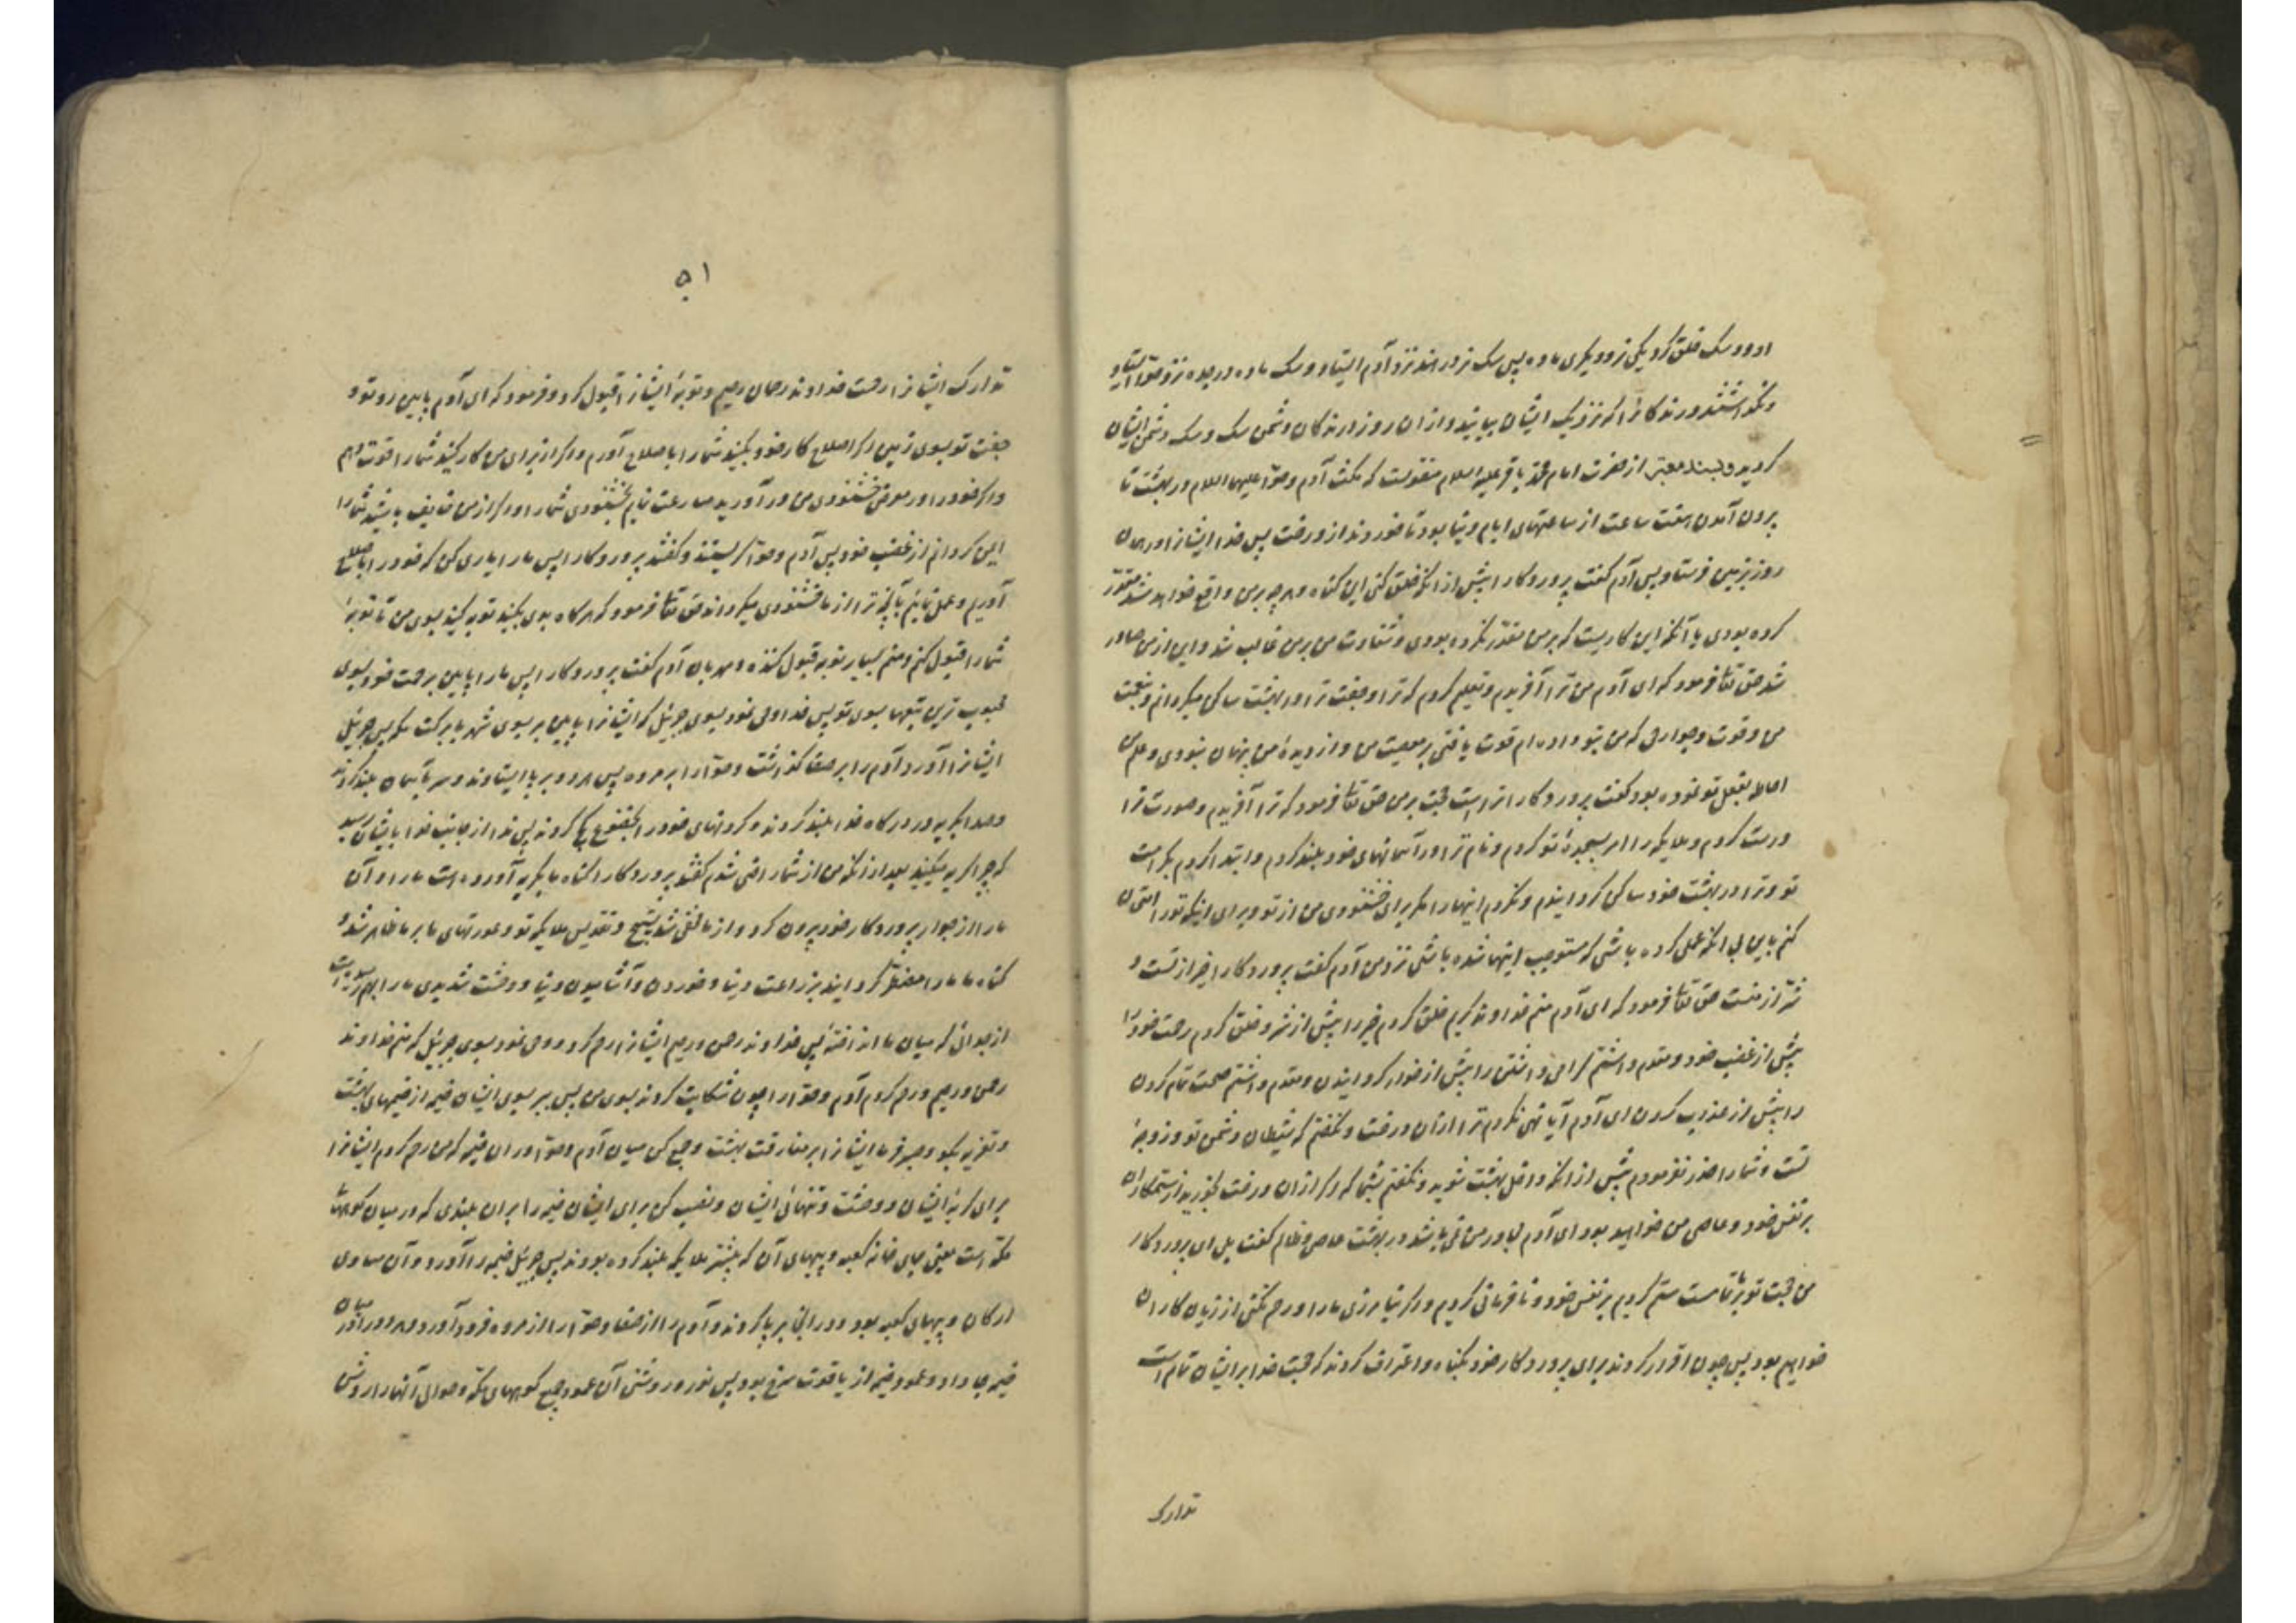 او دو سک خلق کرد یکی نر و دیگری ماده پس سک نر در هند نزد آدم ایستاد و سک ماده در جده نزد حوّا ایستاد
و نکذاشتند درندکان را که نزدیک ایشان بیایند و از ان روز درندکان دشمن سک و سک دشمن ایشان
کردید و بسند معتبر از حضرت امام محمد باقر علیه السلام منقولست که مکث آدم و حوّا علیهما السلام در بهشت تا
برون آمدن هفت ساعت از ساعتهای ایام دنیا بود تا خوردند از درخت پس خدا ایشانرا در همان
روز بزمین فرستاد پس آدم کفت پروردکارا پیش از انکه خلق کنی این کناه و هرچه بر من واقع خواهد شد مقدّر
کرده بودی یا آنکه این کاریست که بر من مقدّر نکرده بودی و شقاوت من بر من غالب شد و این از من صادر
شد حق تعا فرمود که ای آدم من ترا آفریدم و تعلیم کردم که ترا و جفت ترا در بهشت ساکن میکردانم و بنعمت
من و قوت و جوارحی که من بتو داده ام قوت یافتی بر معصیت من و از دیدهٔ من پنهان نبودی و علم من
احاطه بفعل تو نموده بود کفت پروردکارا تراست حجت بر من حق تعا فرمود که ترا آفریدم و صورت ترا
درست کردم و ملایکه را امر بسجدهٔ تو کردم و نام ترا در آسمانهای خود بلند کردم و ابتدا کردم بکرامت
تو و ترا در بهشت خود ساکن کردانیدم و نکردم اینها را مکر برای خشنودی من از تو و برای اینکه تو را امتحان
کنم باین بی انکه عملی کرده باشی که مستوجب اینها شده باشی نزد من آدم کفت پروردکارا خیر از تست و
شرّ از منست حق تعا فرمود که ای آدم منم خداوند کریم خلق کردم خیر را پیش از شر و خلق کردم رحمت خود را
پیش از غضب خود و مقدم داشتم کرامی داشتن را پیش از خوار کردانیدن و مقدم داشتم حجت تمام کردن
را پیش از عذاب کردن ای آدم آیا نهی نکردم ترا از ان درخت و نکفتم که شیطان دشمن تو و زوجهٔ
تست و شما را حذر نفرمودم پیش از انکه داخل بهشت شوید و نکفتم بشما که اکر از ان درخت بخورید از ستمکاران
بر نفس خود و عاصی من خواهید بود ای آدم مجاور من نمی باشد در بهشت عاصی و ظالم کفت بلی ای پروردکار
من حجت تو بر ما تمامست ستم کردیم بر نفس خود و نافرمانی کردیم و اکر نیامرزی ما را و رحم نکنی از زیان کاران
خواهیم بود پس چون اقرار کردند برای پروردکار خود بکناه و اعتراف کردند که حجت خدا بر ایشان تمام است
تدارک
۵۱
تدارک ایشانرا رحمت خداوند رحمان رحیم و توبهٔ ایشانرا قبول کرد و فرمود که ای آدم پایین رو تو و
جفت تو بسوی زمین اکر اصلاح کار خود بکنید شما را باصلاح آورم و اکر از برای من کار کنید شما را قوت دهم
و اکر خود را در معرض خشنودی من در آورید مسارعت نمایم بخشنودی شما و اکر از من خایف باشید شما را
ایمن کردانم از غضب خود پس آدم و حوّا کریستند و کفتند پروردکارا پس ما را یاری کن که خود را باصلاح
آوریم و عمل نمائیم بآنچه ترا از ما خشنودی میکرداند حق تعا فرمود که هر کاه بدی بکنید توبه کنید بسوی من تا توبهٔ
شما را قبول کنم و منم بسیار توبه قبول کننده و مهربان آدم کفت پروردکارا پس ما را پایین بر برحمت خود بسوی
محبوب ترین بقعها بسوی تو پس خدا وحی نمود بسوی جبرئیل که ایشانرا پایین بر بسوی شهر با برکت مکه پس جبرئیل
ایشانرا آورد آدم را بر صفا کذاشت و حوّا را بر مروه پس هر دو بر پا ایستادند و سر بآسمان بلند کردند
و صدا بکریه در درکاه خدا بلند کردند و کردنهای خود را بخضوع کج کردند پس ندا از جانب خدا بایشان رسید
که چرا کریه میکنید بعد از انکه من از شما راضی شدم کفتند پروردکارا کناه ما بکریه آورده است ما را و آن
ما را از جوار پروردکار خود بیرون کرد و از ما مخفی شد تسبیح و تقدیس ملایکهٔ تو و عورتهای ما بر ما ظاهر شد و
کناه ما ما را مضطر کردانید بزراعت دنیا و خوردن و آشامیدن دنیا و وحشت شدیدی ما را بهم رسیده است
از جدائی که میان ما انداختهٔ پس خداوند رحمن و رحیم ایشانرا رحم کرد و وحی نمود بسوی جبرئیل که منم خداوند
رحمن و رحیم و رحم کردم آدم و حوّا را چون شکایت کردند بسوی من پس ببر بسوی ایشان خیمه از خیمهای بهشت
و تعزیه بکو و صبر فرما ایشانرا بر مفارقت بهشت و جمع کن میان آدم و حوّا در ان خیمه که من رحم کردم ایشانرا
برای کریهٔ ایشان و وحشت و تنهائی ایشان و نصب کن برای ایشان خیمه را بر ان بلندی که در میان کوههای
مکّه است یعنی جای خانه کعبه و پیهای آن که پیشتر ملایکه بلند کرده بودند پس جبرئیل خیمه را آورد و آن مساوی
ارکان و پیهای کعبه بود و در انجا بر پا کردند و آدم را از صفا و حوّا را از مروه فرود آورد و هر دو را در میان
خیمه جا داد و عمود خیمه از یاقوت سرخ بود پس نور و روشنی آن عمود جمیع کوههای مکّه و حوالی آنها را روشن